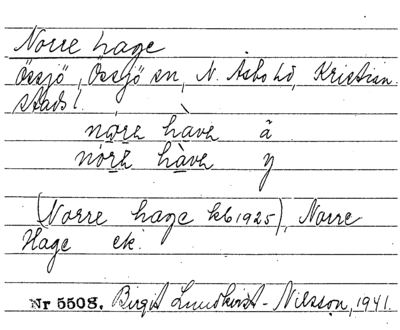 Norre hage
Össjö, Össjö sn, N. Åsbo hd, Kristian
stads l.
nǫrɐ hàvɐ å
nórɐ hàvɐ y
(Norre hage kb 1925), Norre
Hage ek.
Nr 5508. Birgit Lundkvist-Nilsson, 1941.